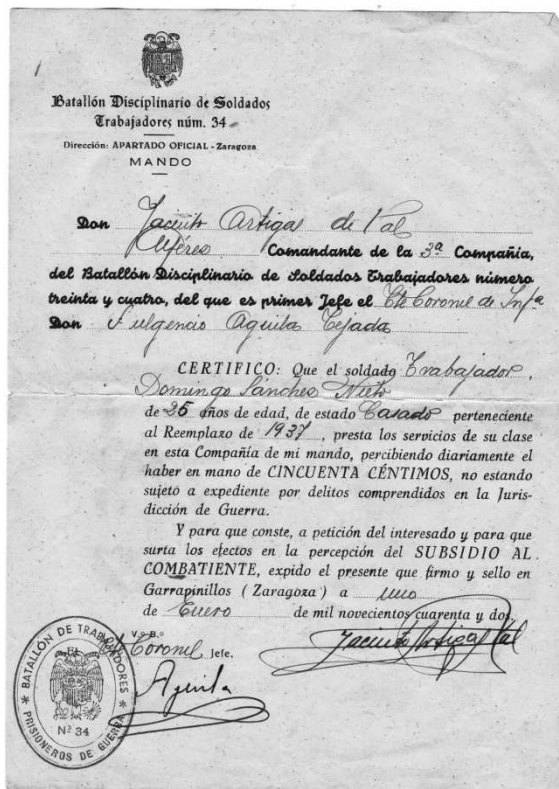 Batallón Disciplinario de Soldados
Trabajadores núm. 34
Dirección: APARTADO OFICIAL - Zaragoza
MANDO
Don Jacinto Artiga de Val
Alférez Comandante de la 3ª Compañía,
del Batallón Disciplinario de Soldados Trabajadores número
treinta y cuatro, del que es primer Jefe el Tte Coronel de Infª
Don Fulgencio Aguila Tejada
CERTIFICO: Que el soldado Trabajador,
Domingo Sánchez Nieto
de 25 años de edad, de estado Casado perteneciente
al Reemplazo de 1937, presta los servicios de su clase
en esta Compañía de mi mando, percibiendo diariamente el
haber en mano de CINCUENTA CÉNTIMOS, no estando
sujeto a expediente por delitos comprendidos en la Juris-
dicción de Guerra.
Y para que conste, a petición del interesado y para que
surta los efectos en la percepción del SUBSIDIO AL
COMBATIENTE, expido el presente que firmo y sello en
Garrapinillos (Zaragoza) a uno
de Enero de mil novecientos cuarenta y dos.
V.º B.º
Coronel Jefe.
Jacinto Artiga Val
Aguila
BATALLÓN DE TRABAJADORES
PRISIONEROS DE GUERRA
Nº 34